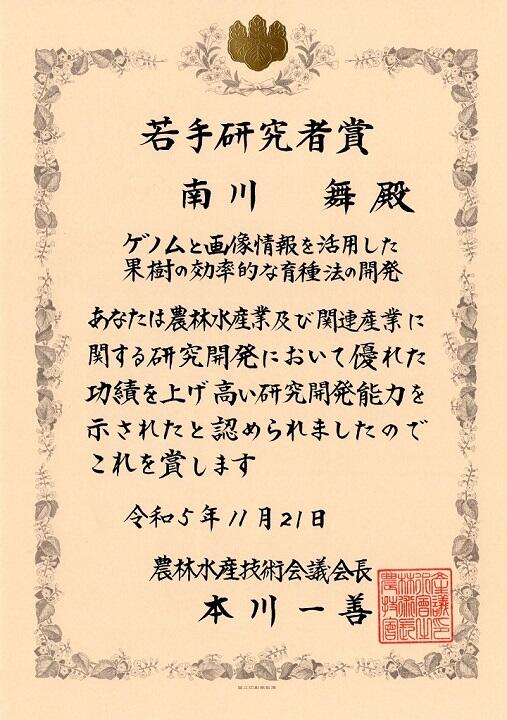 若手研究者賞
南川　舞殿
ゲノムと画像情報を活用した
果樹の効率的な育種法の開発
あなたは農林水産業及び関連産業に
関する研究開発において優れた
功績を上げ高い研究開発能力を
示されたと認められましたので
これを賞します
令和5年11月21日
農林水産技術会議会長
本川一善